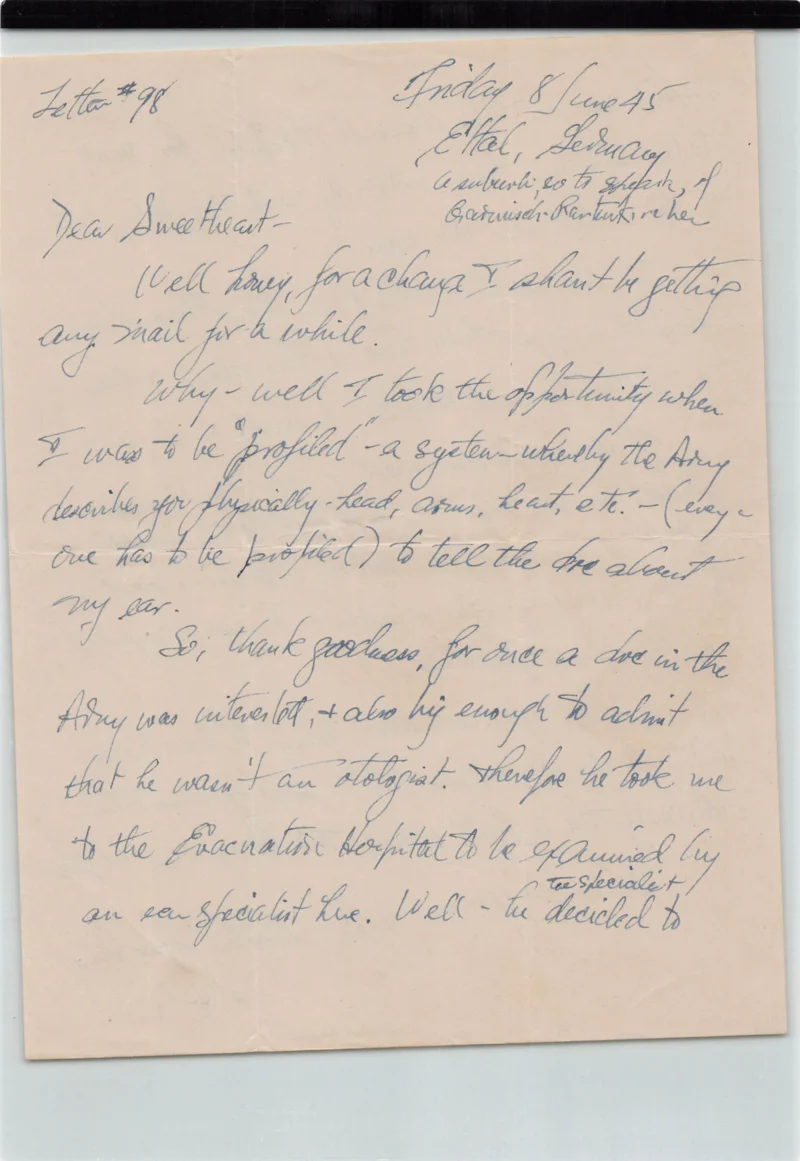 Letter #98
Friday 8 June 45
Ettal, Germany
a suburb, so to speak, of
Garmisch-Partenkirchen
Dear Sweetheart-
Well honey, for a change I shant be getting
any mail for a while.
Why - well I took the opportunity when
I was to be "profiled" - a system - whereby the Army
describes you physically - head, arms, heart, etc. - (every-
one has to be profiled) to tell the doc about
my ear.
So, thank goodness, for once a doc in the
Army was interested, + also big enough to admit
that he wasn't an otologist. Therefore he took me
to the Evacuation Hospital to be examined by
an ear specialist here. Well - he decided to
the specialist